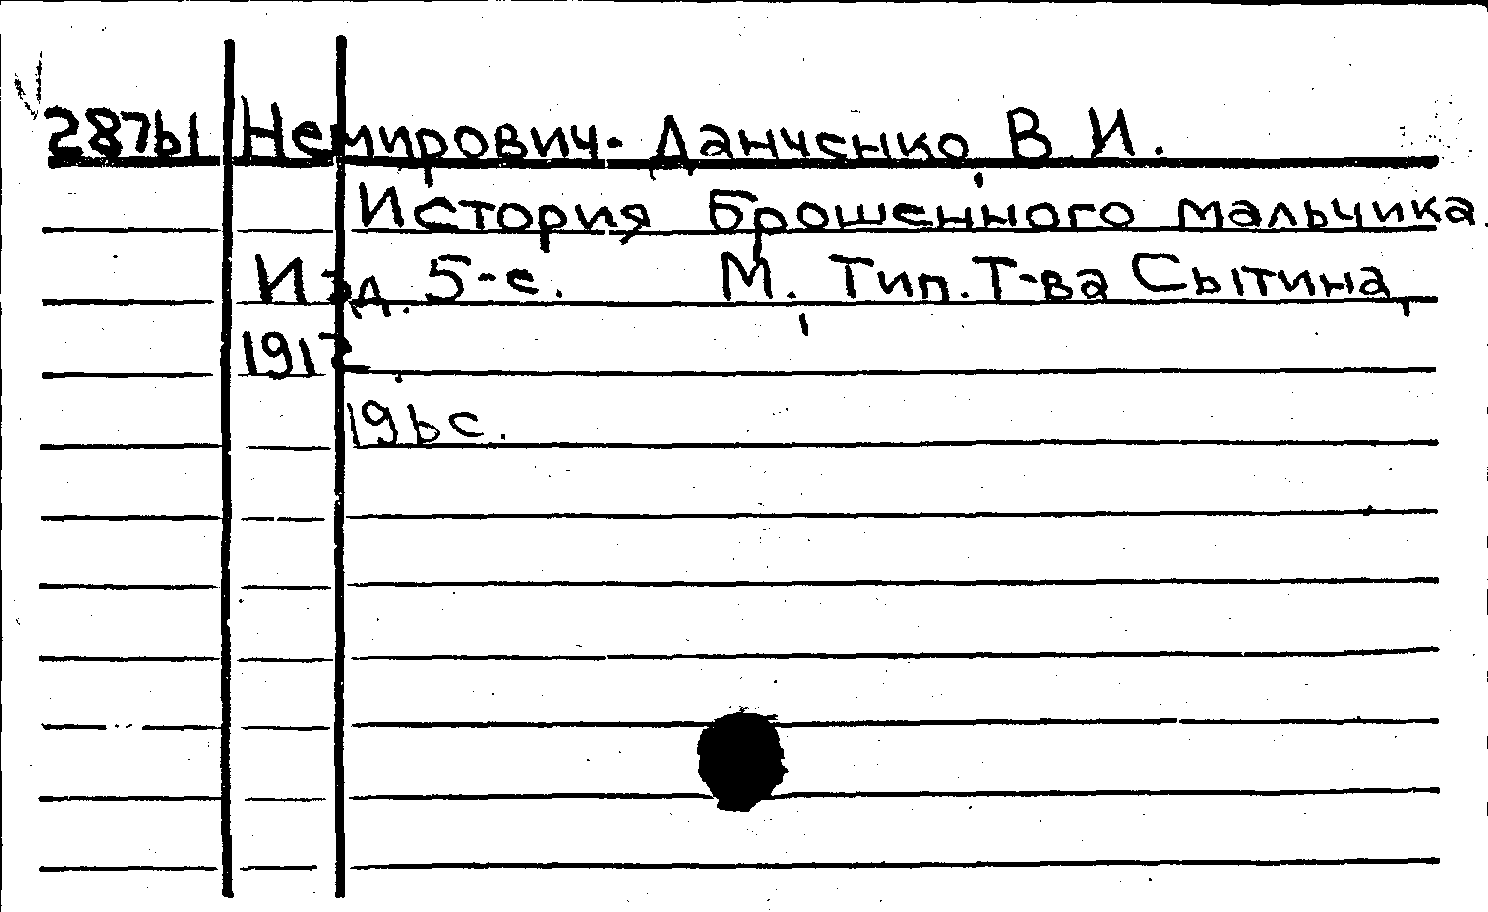 28761 Немирович-Данченко, В. И.
История брошенного мальчика.
Изд. 5-е. М., Тип. Т-ва Сытина,
1912.
196 с.